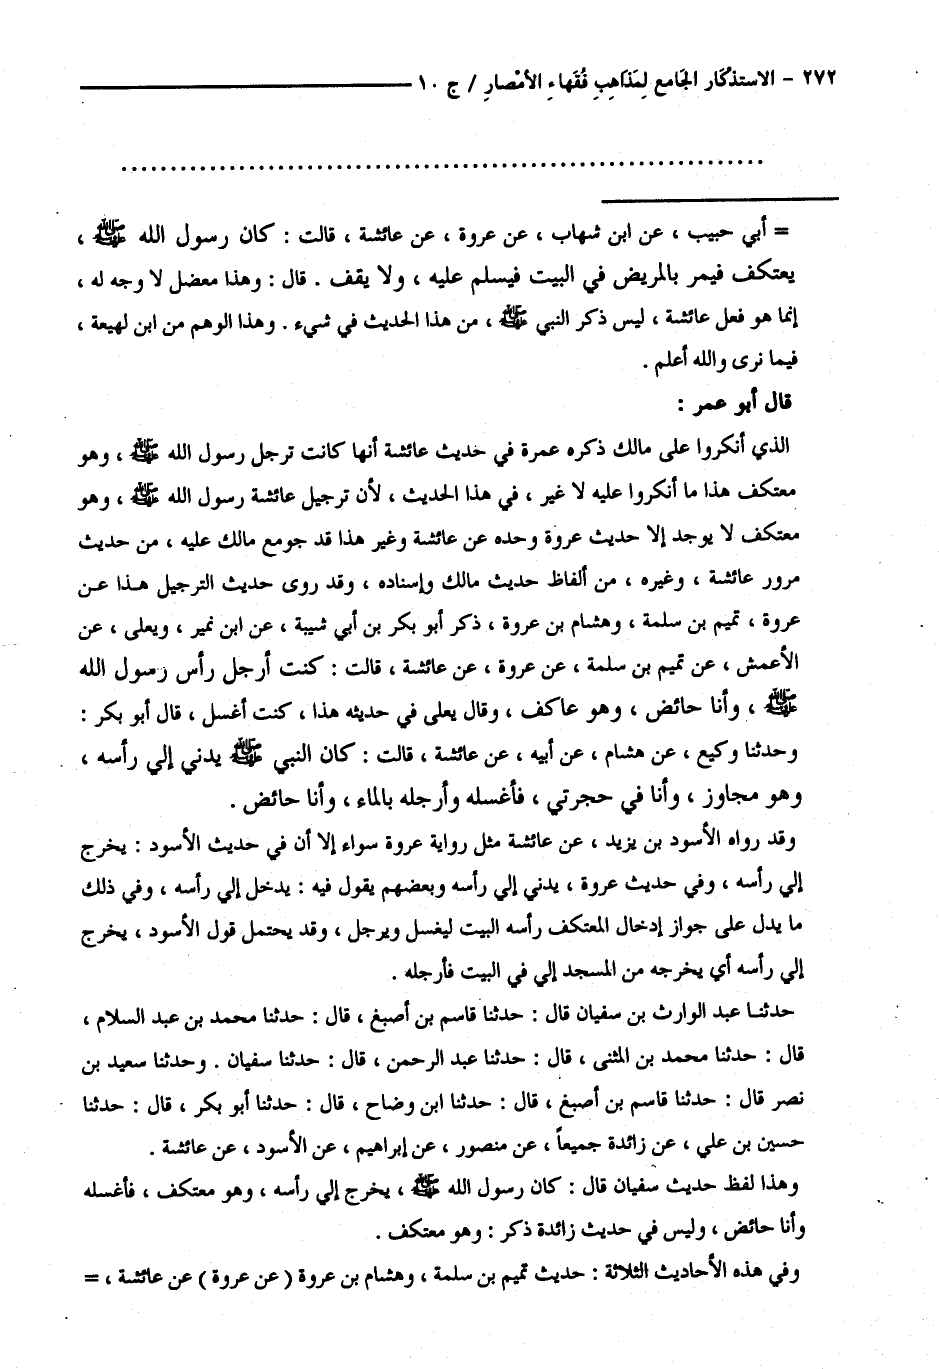 ٢٧٢ - الاستذكار الجامع لِمَذاهِبِ فُقَهاءِ الأمْصارِ / ج ١٠
................................................................
= أبي حبيب ، عن ابن شهاب ، عن عروة ، عن عائشة ، قالت : كان رسول الله ﷺ ،
يعتكف فيمر بالمريض في البيت فيسلم عليه ، ولا يقف . قال : وهذا معضل لا وجه له ،
إنما هو فعل عائشة ، ليس ذكر النبي ﷺ ، من هذا الحديث في شيء . وهذا الوهم من ابن لهيعة ،
فيما نرى والله أعلم .
قال أبو عمر :
الذي أنكروا على مالك ذكره عمرة في حديث عائشة أنها كانت ترجل رسول الله ﷺ ، وهو
معتكف هذا ما أنكروا عليه لا غير ، في هذا الحديث ، لأن ترجيل عائشة رسول الله ﷺ ، وهو
معتكف لا يوجد إلا حديث عروة وحده عن عائشة وغير هذا قد جومع مالك عليه ، من حديث
مرور عائشة ، وغيره ، من ألفاظ حديث مالك وإسناده ، وقد روى حديث الترجيل هذا عن
عروة ، تميم بن سلمة ، وهشام بن عروة ، ذكر أبو بكر بن أبي شيبة ، عن ابن نمير ، ويعلى ، عن
الأعمش ، عن تميم بن سلمة ، عن عروة ، عن عائشة ، قالت : كنت أرجل رأس رسول الله
ﷺ ، وأنا حائض ، وهو عاكف ، وقال يعلى في حديثه هذا ، كنت أغسل ، قال أبو بكر :
وحدثنا وكيع ، عن هشام ، عن أبيه ، عن عائشة ، قالت : كان النبي ﷺ يدني إلي رأسه ،
وهو مجاوز ، وأنا في حجرتي ، فأغسله وأرجله بالماء ، وأنا حائض .
وقد رواه الأسود بن يزيد ، عن عائشة مثل رواية عروة سواء إلا أن في حديث الأسود : يخرج
إلي رأسه ، وفي حديث عروة ، يدني إلي رأسه وبعضهم يقول فيه : يدخل إلي رأسه ، وفي ذلك
ما يدل على جواز إدخال المعتكف رأسه البيت ليغسل ويرجل ، وقد يحتمل قول الأسود ، يخرج
إلي رأسه أي يخرجه من المسجد إلي في البيت فأرجله .
حدثنا عبد الوارث بن سفيان قال : حدثنا قاسم بن أصبغ ، قال : حدثنا محمد بن عبد السلام ،
قال : حدثنا محمد بن المثنى ، قال : حدثنا عبد الرحمن ، قال : حدثنا سفيان . وحدثنا سعيد بن
نصر قال : حدثنا قاسم بن أصبغ ، قال : حدثنا ابن وضاح ، قال : حدثنا أبو بكر ، قال : حدثنا
حسين بن علي ، عن زائدة جميعاً ، عن منصور ، عن إبراهيم ، عن الأسود ، عن عائشة .
وهذا لفظ حديث سفيان قال : كان رسول الله ﷺ ، يخرج إلي رأسه ، وهو معتكف ، فأغسله
وأنا حائض ، وليس في حديث زائدة ذكر : وهو معتكف .
وفي هذه الأحاديث الثلاثة : حديث تميم بن سلمة ، وهشام بن عروة ( عن عروة ) عن عائشة ، =